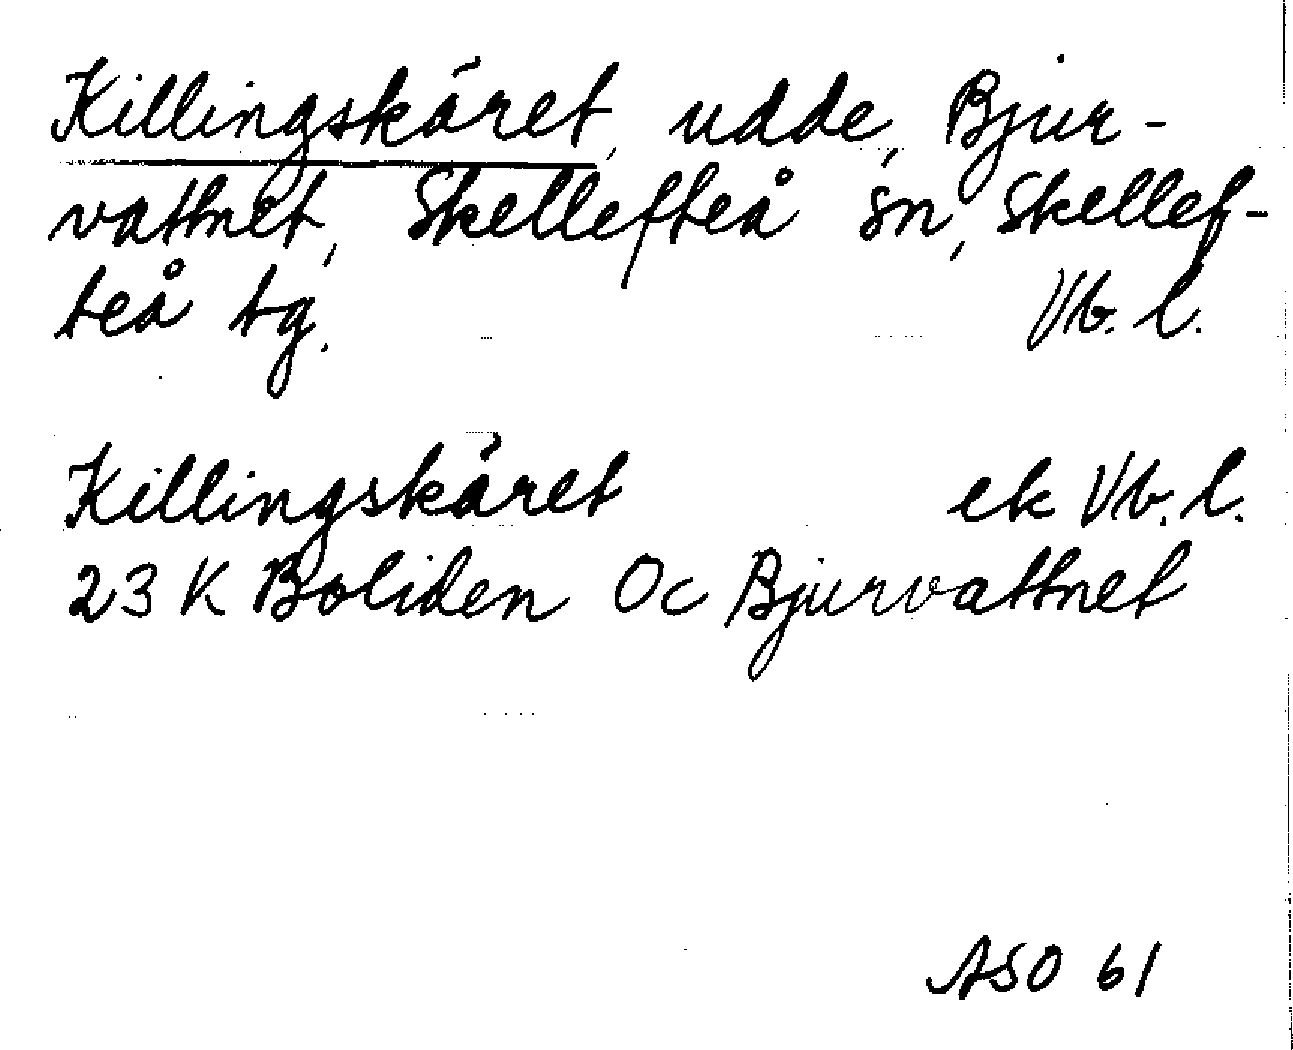 Killingskäret, udde, Bjur-
vattnet, Skellefteå sn, Skellef-
teå tg. Vb. l.
Killingskäret ek Vb. l.
23 K Boliden Oc Bjurvattnet
ASO 61